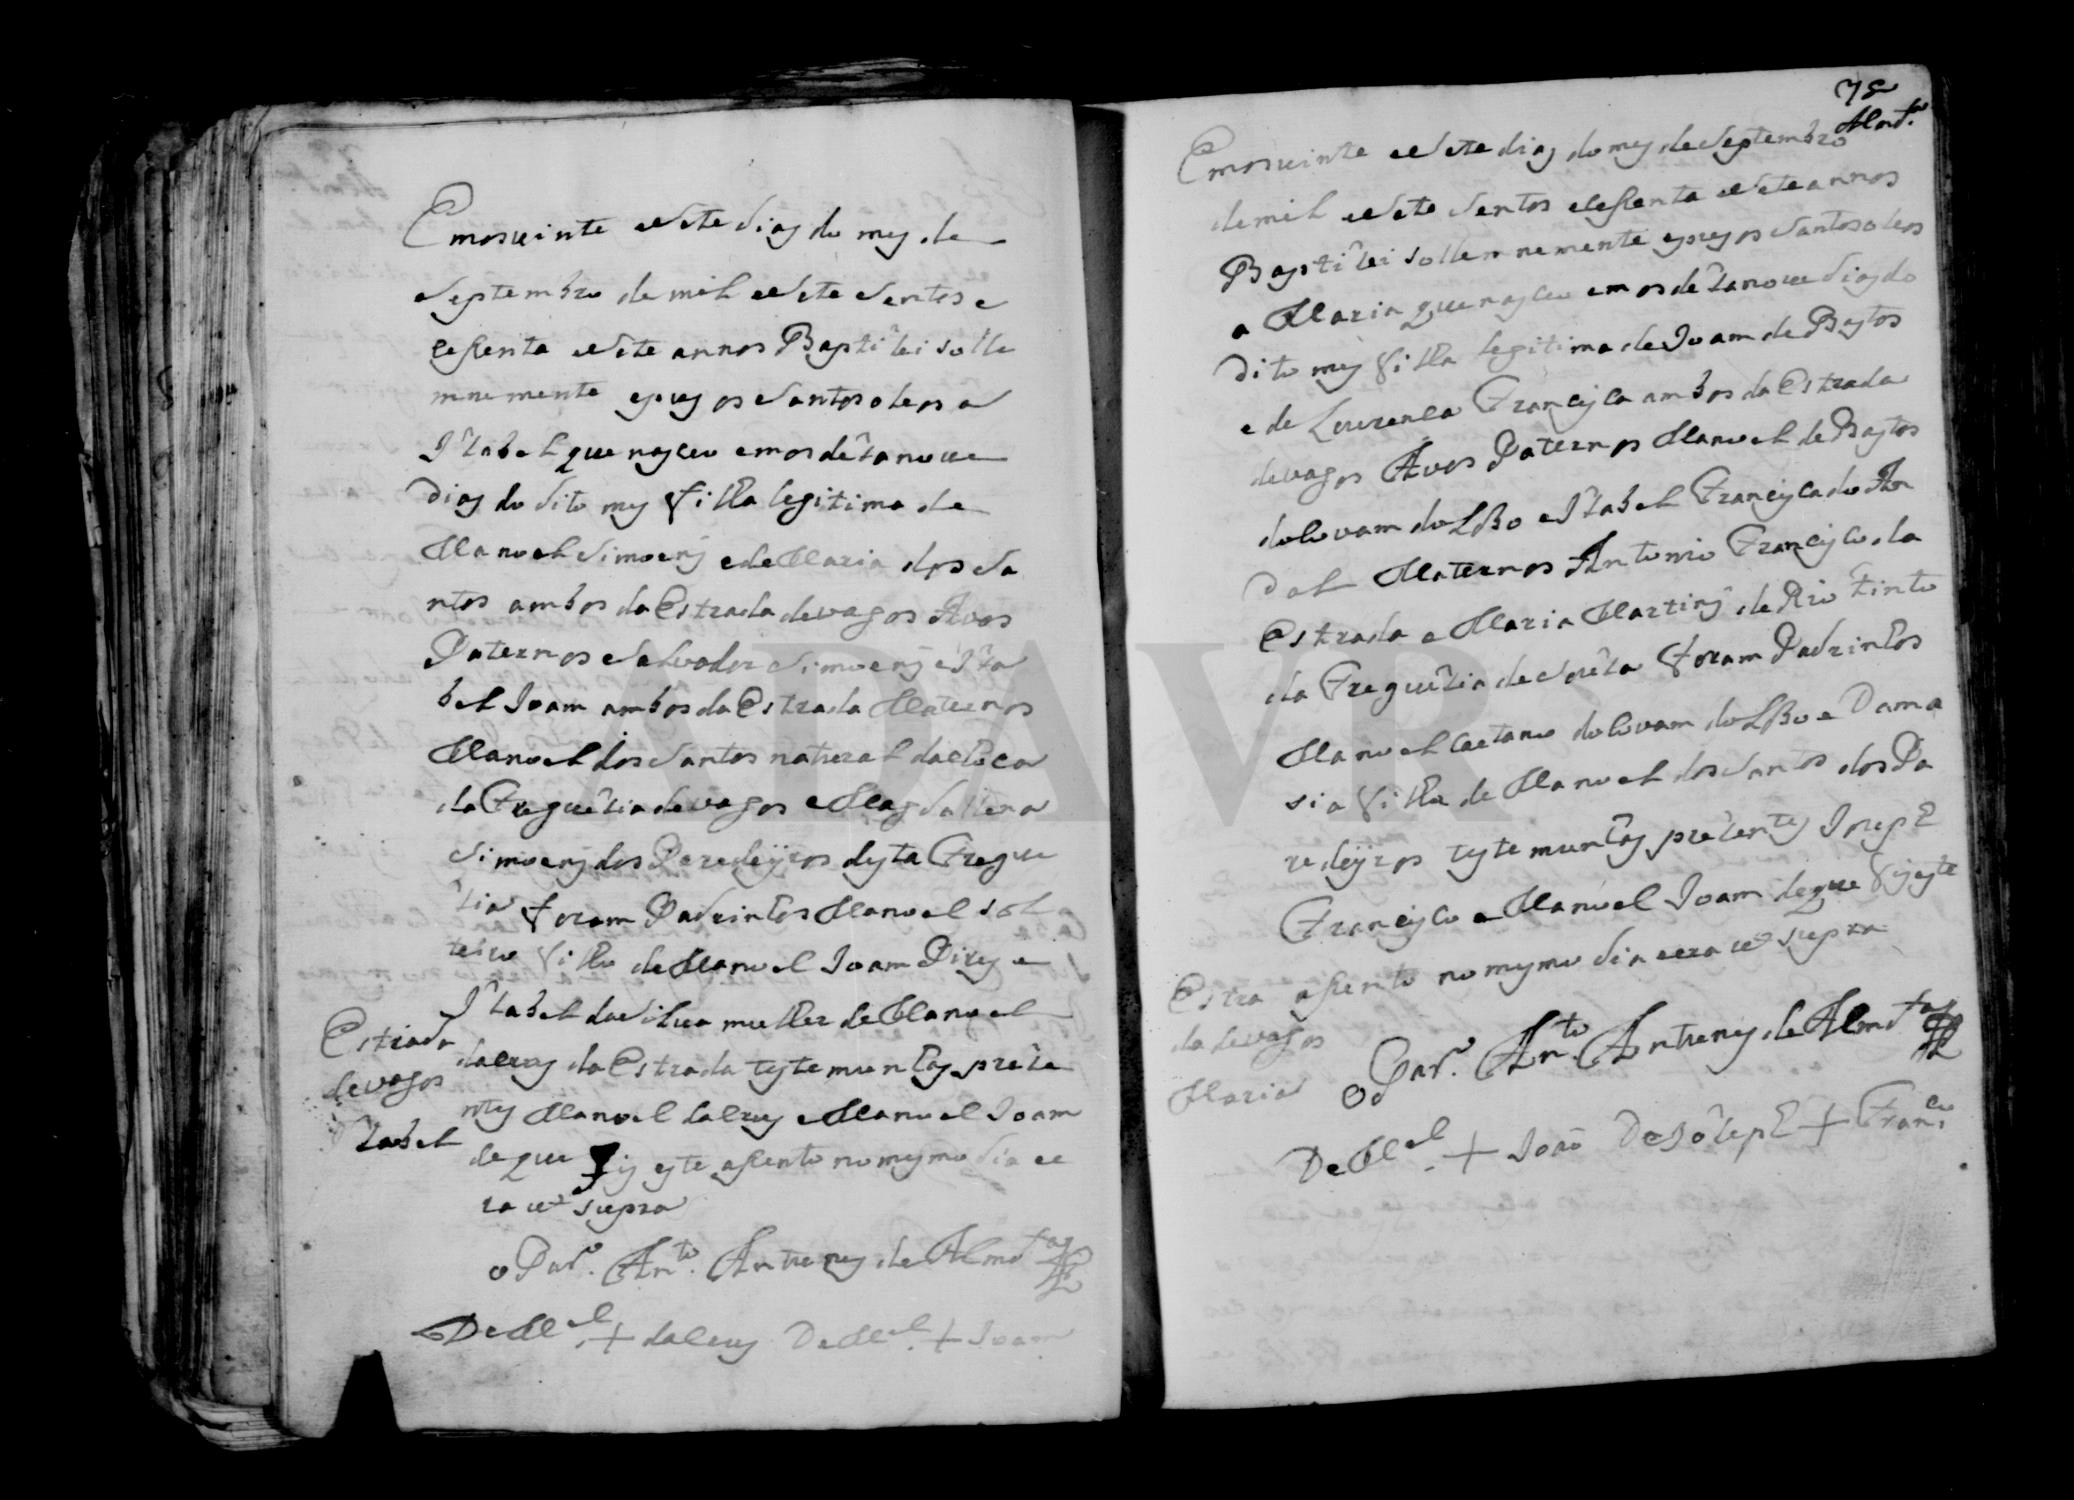 Emosvinte esete dias do mes de
septembro de mil esete sentos e
sessenta esete annos Baptizei solle
mnemente epus os santos oleos a
Izabel que nasceo emos dezanove
dias do dito mes filha legitima de
Manoel Simoens e de Maria dos Sa
ntos ambos da Estrada de vagos Avos
Paternos Salvador Simoens e Iza
bel Joam ambos da Estrada Maternos
Manoel dos Santos natural da
da Freguezia de vagos e Magdallena
Simoens dos Paredeyros desta Fregue
zia foram Padrinhos Manoel sol
teiro filho de Manoel Joam Pires e
Izabel da Silva mulher de Manoel
da Estrada testemunhas preze
ntes Manoel e Manoel Joam
de que fis este assento no mesmo dia e e
ra ut supra
o Par.º An.to Antunes de Almd.a
De M.el + De M.el + Joam
Estrada
de vagos
Izabel
78
Almd.a
Emosvinte esete dias do mes de Septembro
de mil esete sentos esessenta esete annos
Baptizei sollemnemente epus os santos oleos
a Maria que nasceo emos dezanove dias do
dito mes filha legitima de Joam de Bastos
e de Lourença Francisca ambos da Estrada
de vagos Avos Paternos Manoel de Bastos
do Covam do Lobo e Izabel Francisca do An
dal Maternos Antonio Francisco da
Estrada e Maria Martins de Rio Tinto
da Freguezia de Soza foram Padrinhos
Manoel Caetano do Covam do Lobo e Dama
sia filha de Manoel dos Santos dos Pa
redeyros testemunhas prezentes Joseph
Francisco e Manoel Joam de que fis este
assento no mesmo dia e era ut supra
Estra
da de vagos
Maria
o Par.º An.to Antunes de Almd.a
De M.el + João De Jozeph + Fran.co
ADAVR